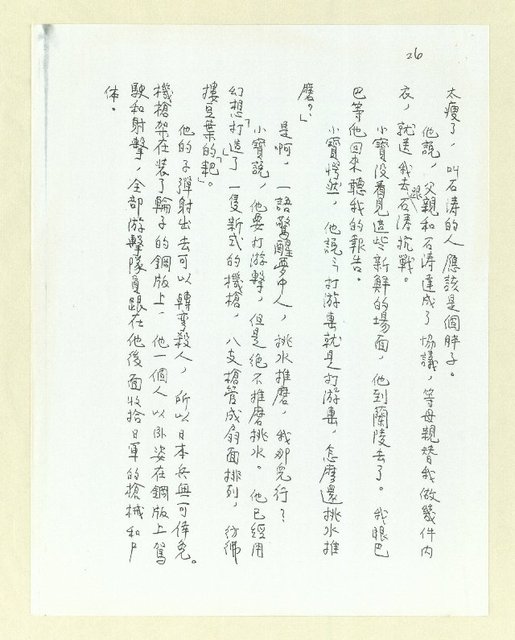 26
太瘦了，叫石涛的人應該是個胖子。
他說，父親和石涛達成了協議，等母親替我做幾件内
衣，就送我去跟石涛抗戰。
小寶没看見這些新鮮的場面，他到蘭陵去了。我眼巴
巴等他回來聽我的報告。
小寶愕然，他說：打游擊就是打游擊，怎麼還挑水推
磨？」
是啊，一語驚醒夢中人，挑水推磨，我那兒行？
小寶說，他要打游擊，但是絕不推磨挑水。他已經用
幻想打造了一隻新式的機槍，八支槍管成扇面排列，彷彿
「摟豆葉的耙」。
他的子彈射出去可以轉彎殺人，所以日本兵無可倖免。
機槍架在装了輪子的鋼版上，他一個人以卧姿在鋼版上駕
駛和射擊，全部游擊隊員跟在他後面收拾日軍的槍械和尸
体。